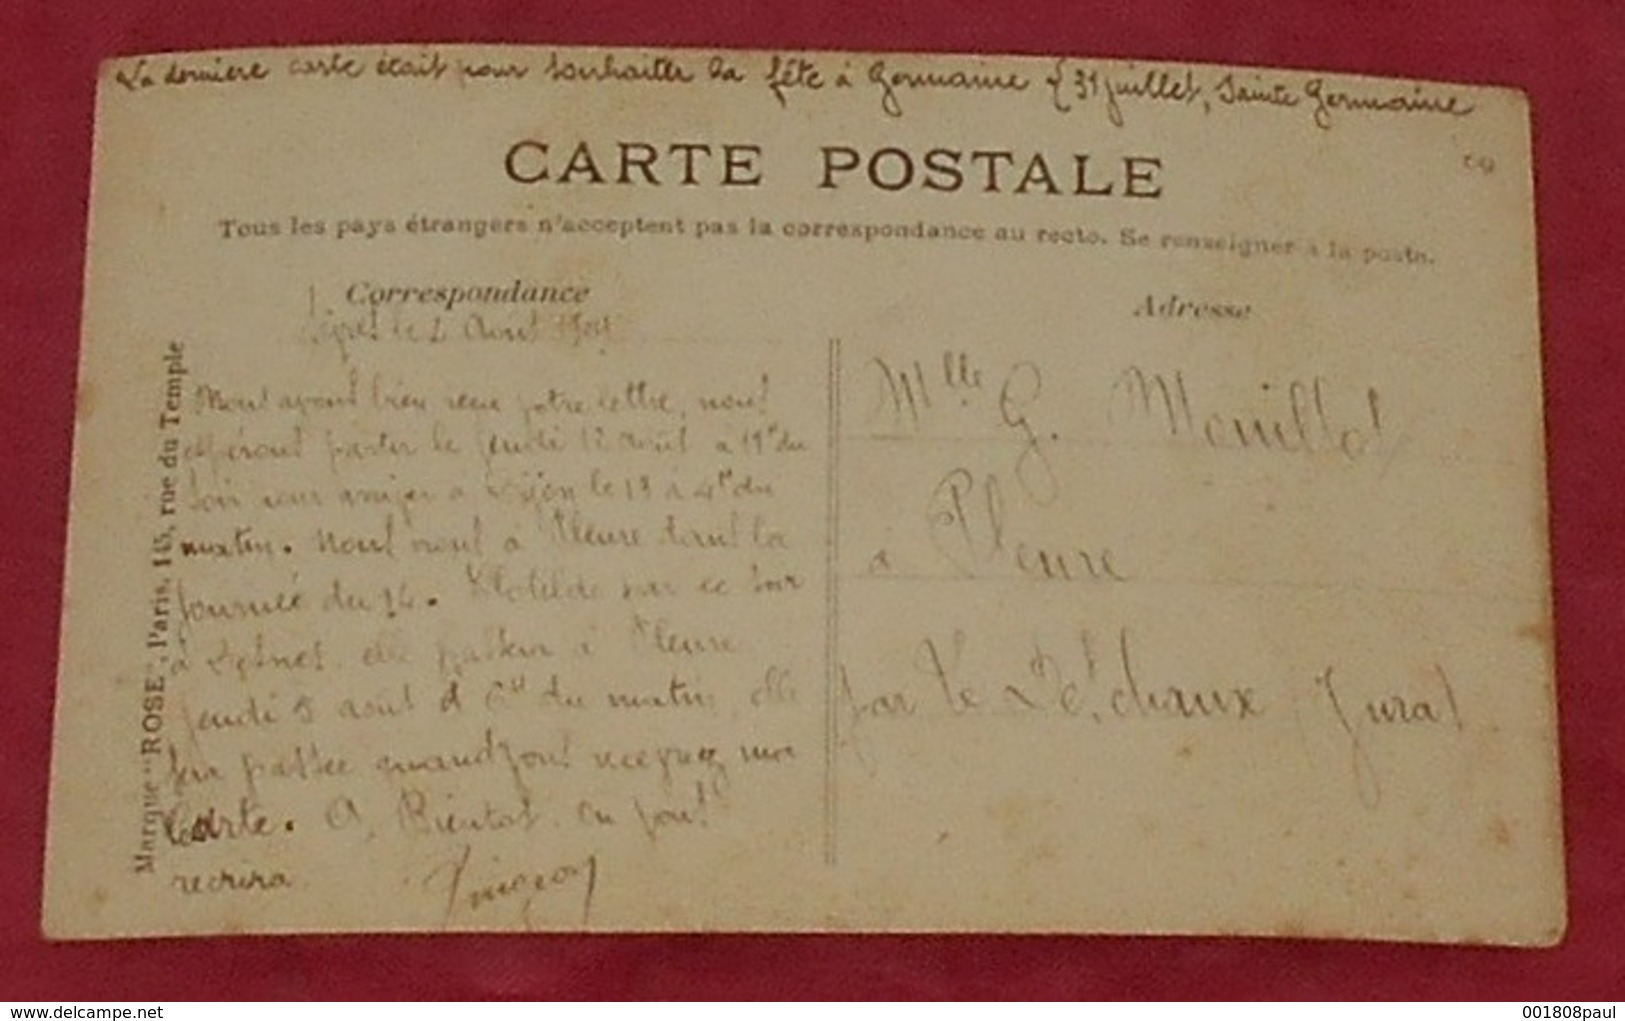 La dernière carte était pour souhaiter la fête à Germaine { 31 juillet, Sainte Germaine
CARTE POSTALE
Tous les pays étrangers n'acceptent pas la correspondance au recto. Se renseigner à la poste.
Correspondance
le 2 Aout
Nous avons bien reçu votre lettre, nous
espérons partir le jeudi 12 août à 11h du
soir pour arriver à Dijon le 13 à 4h du
matin. Nous irons à Pleure dans la
journée du 14. Clotilde par ce soir
à elle passera à Pleure
jeudi 5 aout à 6h du matin, elle
sera passée quand vous recevrez ma
carte. A Bientot. on vous
recrira
Marque "ROSE", Paris, 145, rue du Temple
Adresse
Mlle G. Mouillot
à Pleure
par le Deschaux Jura
Delcampe.net
001808paul